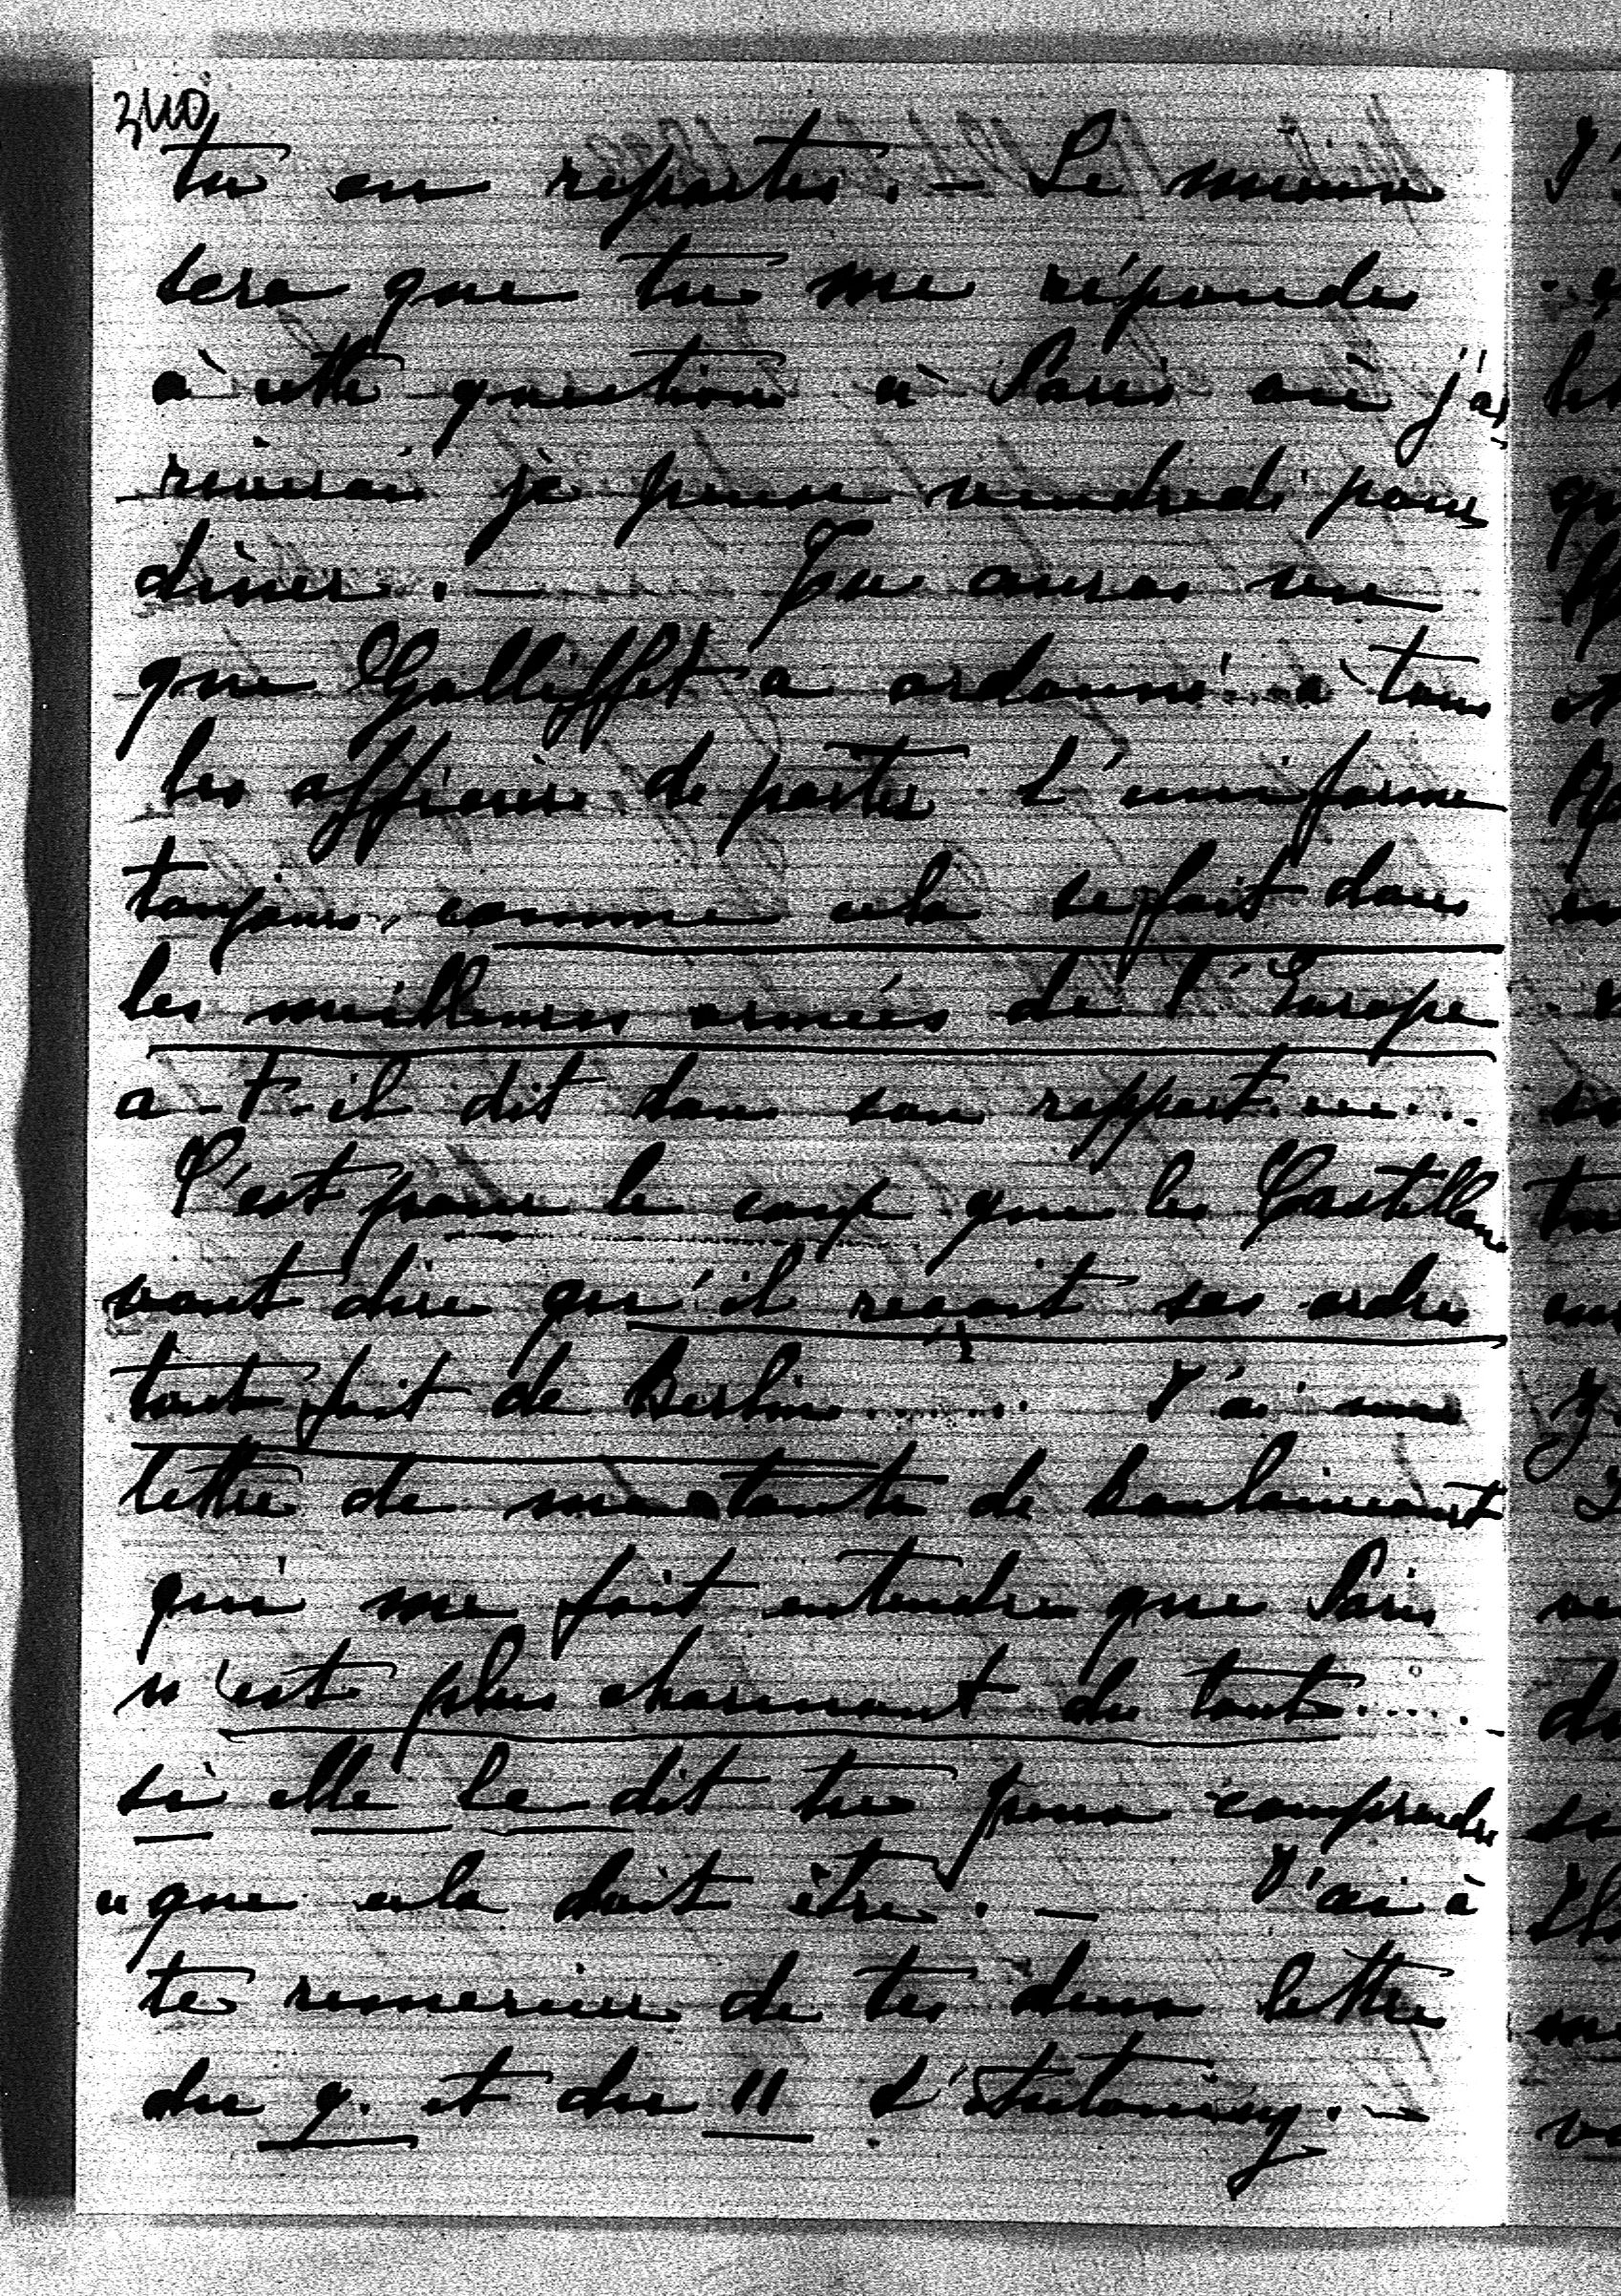 240
tu en repartes. — Le mieux
sera que tu me répondes
à cette question à Paris où j'ar
riverai je pense vendredi pour
dîner. — Tu auras vu
que Galliffet a ordonné à tous
les officiers de porter l'uniforme
toujours, comme cela se fait dans
les meilleures armées de l'Europe
a-t-il dit dans son rapport........
C'est pour le coup que les Castellane
vont dire qu'il reçoit ses ordres
tout fait de Berlin........ J'ai une
lettre de ma tante de Beaulaincourt
qui me fait entendre que Paris
n'est plus charmant du tout.....
si elle le dit tu peux comprendre
ce que cela doit être. — J'ai à
te remercier de tes deux lettres
du 9. et du 11 d'Antoniny. —